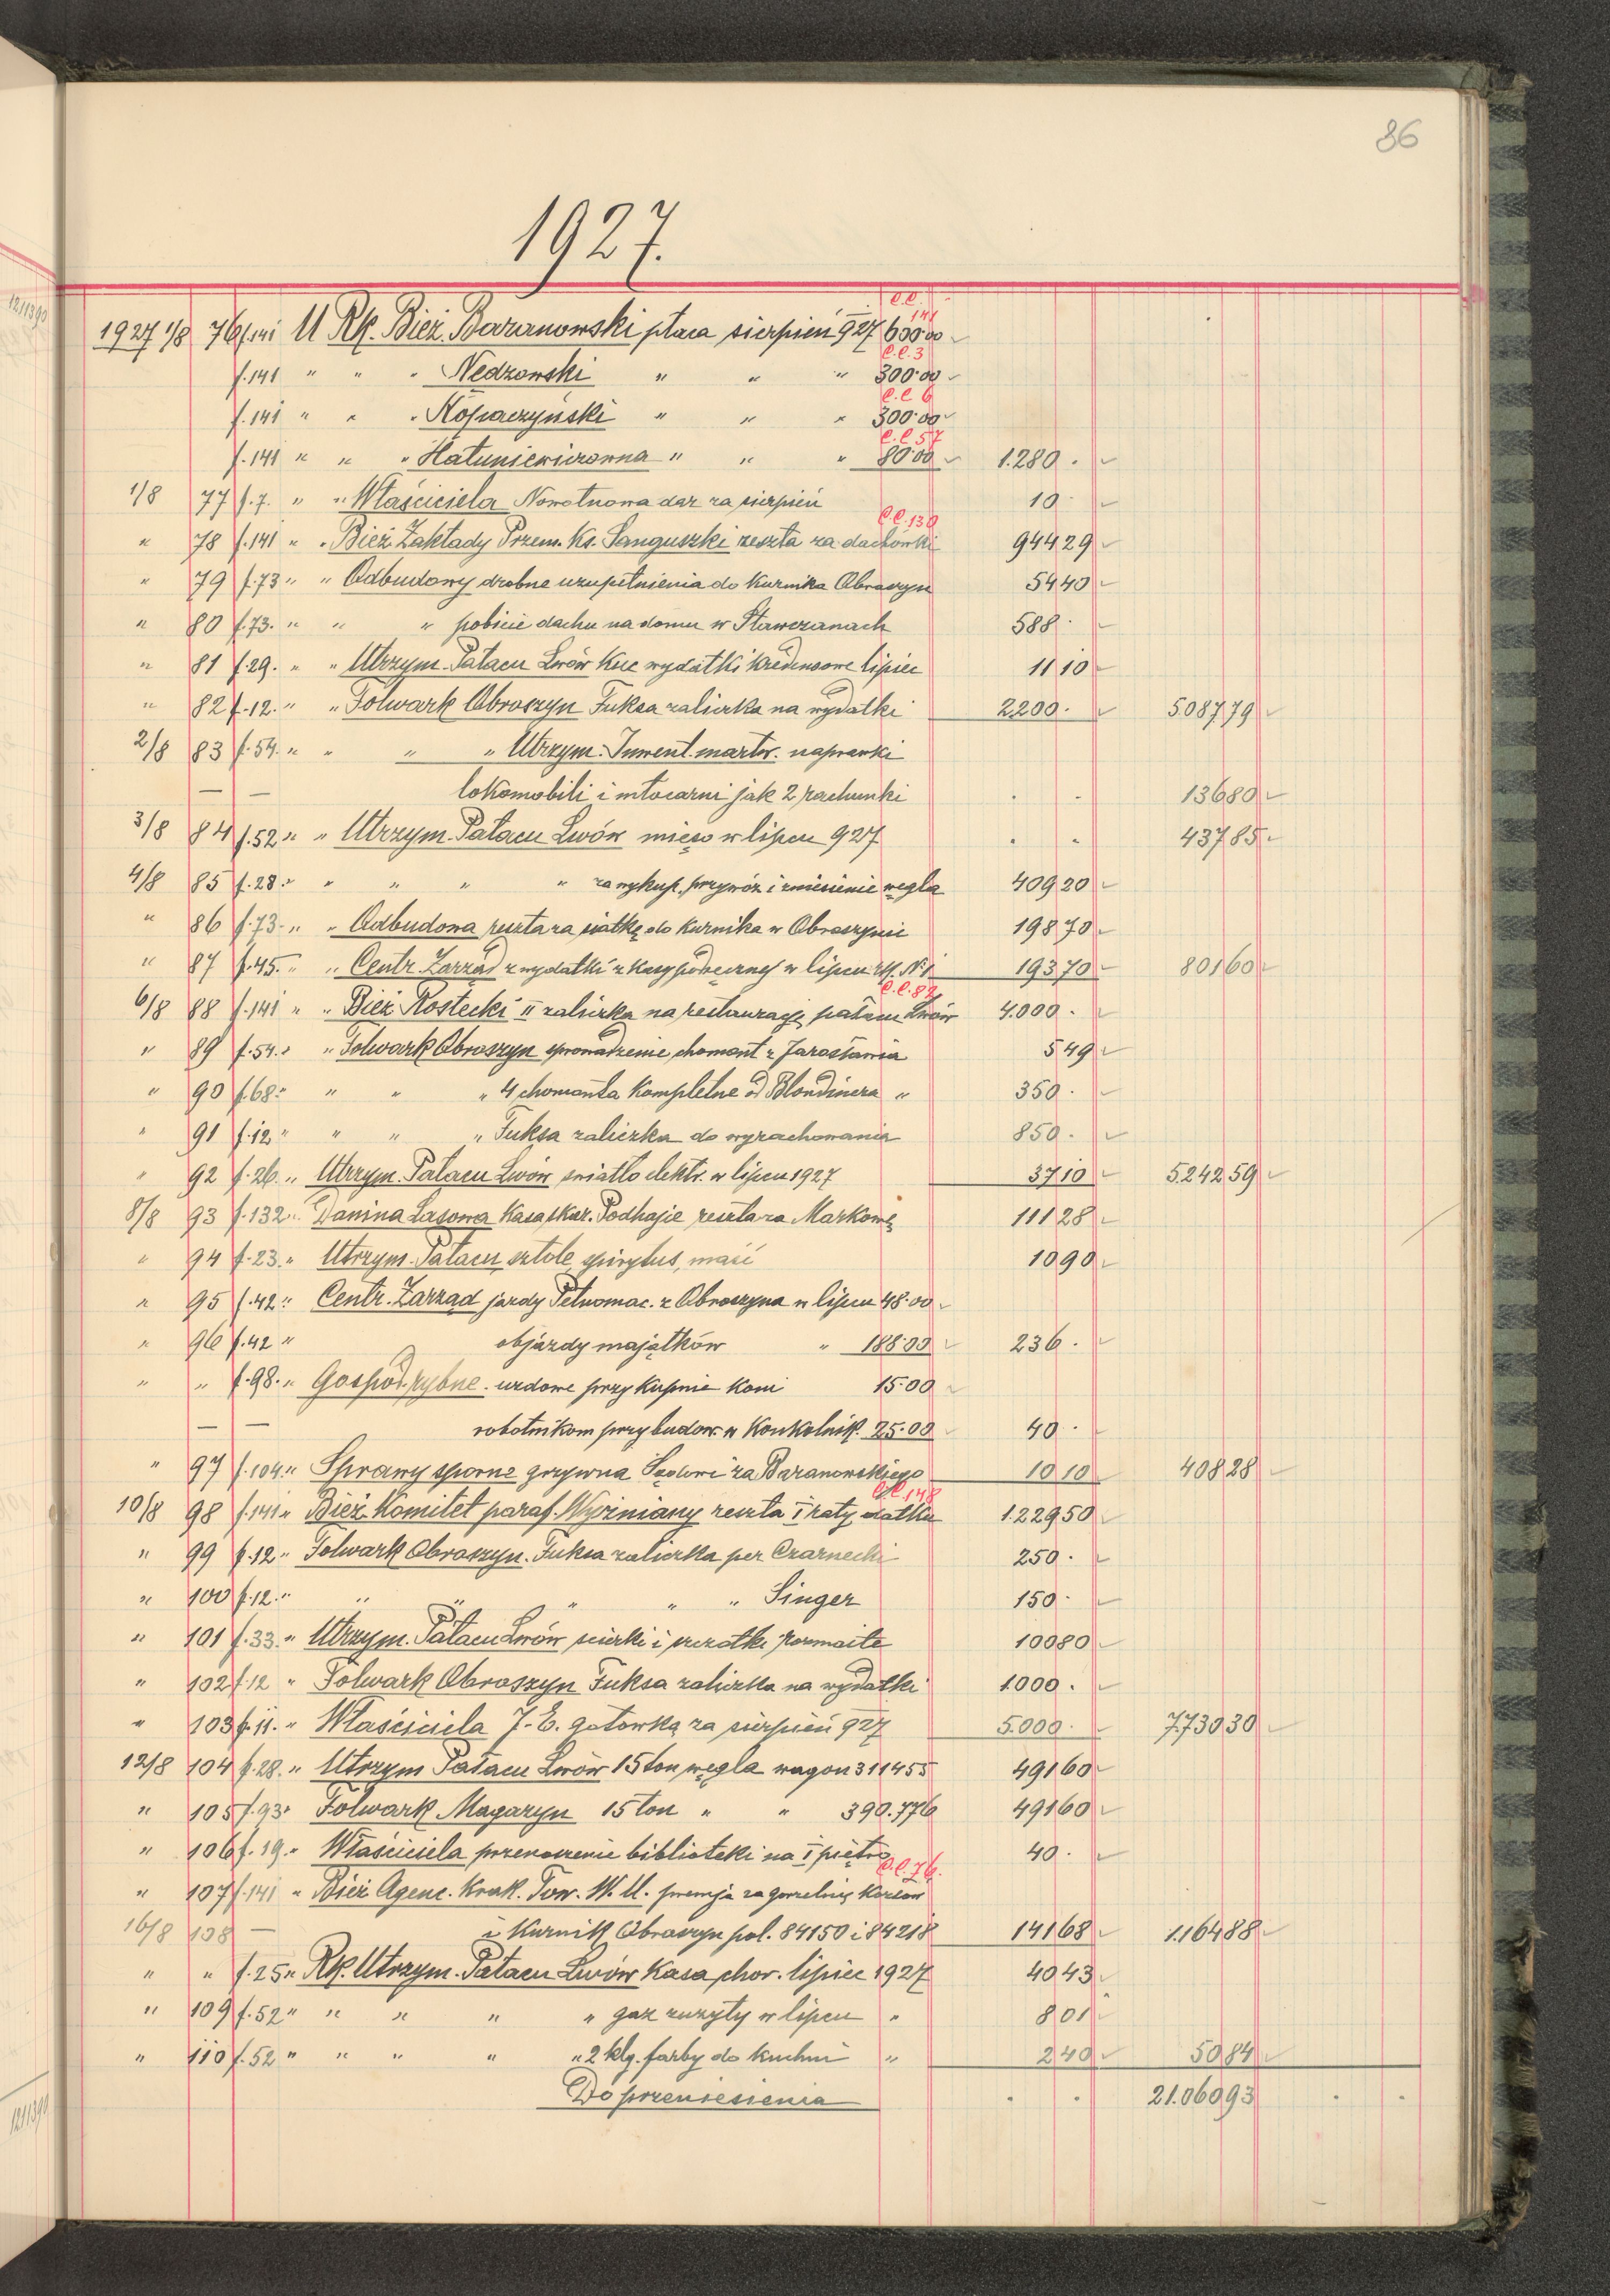 86
1927.
C.C. 141
1927 1/8 76 f.141 U Rk. Bież. Baranowski płaca sierpień 927 600·00
C.C. 3
f.141 " " " Nedzowski " " " 300·00
C.C 6
f.141 " " " Kopaczyński " " " 300·00
C.C 57
f.141 " " " Hatuniewiczowna " " " 80·00 1.280 .
1/8 77 f.7. " " Właściciela Nowotnowa dar za sierpień 10
C.C. 130
" 78 f.141 " " Bież Zakłady Przem. Ks. Sanguszki reszta za dachówki 944 29
" 79 f.73 " " Odbudowy drobne uzupełnienia do Kurnika Obroszyn 54 40
" 80 f.73. " " " pobicie dachu na domu w Stawczanach 588 ·
" 81 f.29. " " Utrzym. Pałacu Lwów Kuc wydatki kredensowe lipiec 11 10
" 82 f.12. " " Folwark Obroszyn Fuksa zaliczka na wydatki 2.200 · 5.087 79
2/8 83 f.54. " " " " Utrzym. Inwent. martw. naprawki
— — lokomobili i młocarni jak 2 rachunki · · 136 80
3/8 84 f.52 " " Utrzym. Pałacu Lwów mięso w lipcu 927 · · 437 85
4/8 85 f.28 " " " " " za wykup. przywóz i zniesienie węgla 409 20
" 86 f.73 " " Odbudowa reszta za siatkę do Kurnika w Obroszynie 198 70
" 87 f.45. " " Centr. Zarząd wydatki z kasy podręcznej w lipcu rk. N. 1 193 70 801 60
C.C. 82
6/8 88 f.141 " " Bież Kostecki II zaliczka na restauracyę pałacu Lwów 4.000 ·
" 89 f.54. " " Folwark Obroszyn sprowadzenie chomont z Jarosławia 5 49
" 90 f.68 " " " " 4 chomonta kompletne od Blondinera " 350 ·
" 91 f.12 " " " " Fuksa zaliczka do wyrachowania 850 ·
" 92 f.26. " Utrzym. Pałacu Lwów światło elektr. w lipcu 1927 37 10 5.242 59
8/8 93 f.132 " Danina Lasowa Kasa skar. Podhajce reszta za Markowę 111 28
" 94 f.23. " Utrzym. Pałacu, sztole, spirytus, maść 10 90
" 95 f.42 " Centr. Zarząd jazdy Pełnomoc. z Obroszyna w lipcu 48·00
" 96 f.42 " objazdy majątków " 188·00 236 ·
" " f.98. " Gospod. rybne. uzdowe przy kupnie koni 15·00
— — robotnikom przy budow. w Konkolnik. 25·00 40 ·
" 97 f.104. " Sprawy sporne grzywna Sądowi za Baranowskiego 10 10 408 28
C.C. 148
10/8 98 f.141 " Bież. Komitet paraf. Wyżniany reszta I raty datku 1.229 50
" 99 f.12 " Folwark Obroszyn. Fuksa zaliczka per Czarnecki 250 ·
" 100 f.12 " " " " " " Singer 150 ·
" 101 f.33. " Utrzym. Pałacu Lwów ścierki i szczotki rozmaite 100 80
" 102 f.12 " Folwark Obroszyn Fuksa zaliczka na wydatki 1.000 ·
" 103 f.11. " Właściciela J. E. gotówką za sierpień 927 5.000 · 7.730 30
12/8 104 f.28. " Utrzym Pałacu Lwów 15 ton węgla wagon 311455 491 60
" 105 f.93 " Folwark Magazyn 15 ton " " 390.776 491 60
" 106 f.19. " Właściciela przenoszenie biblioteki na I piętro 40 ·
C.C. 76.
" 107 f.141 " Bież Agenc. Krak. Tow. W. U. premja za gorzelnię
16/8 108 — i Kurnik Obroszyn pol. 84150 i 84218 141 68 1.164 88
" " f.25 " Rk. Utrzym. Pałacu Lwów Kasa chor. lipiec 1927 40 43
" 109 f.52 " " " " " gaz zużyty w lipcu " 8 01
" 110 f.52 " " " " " 2 klg. farby do kuchni " 2 40 50 84
Do przeniesienia · · 21.060 93 · ·